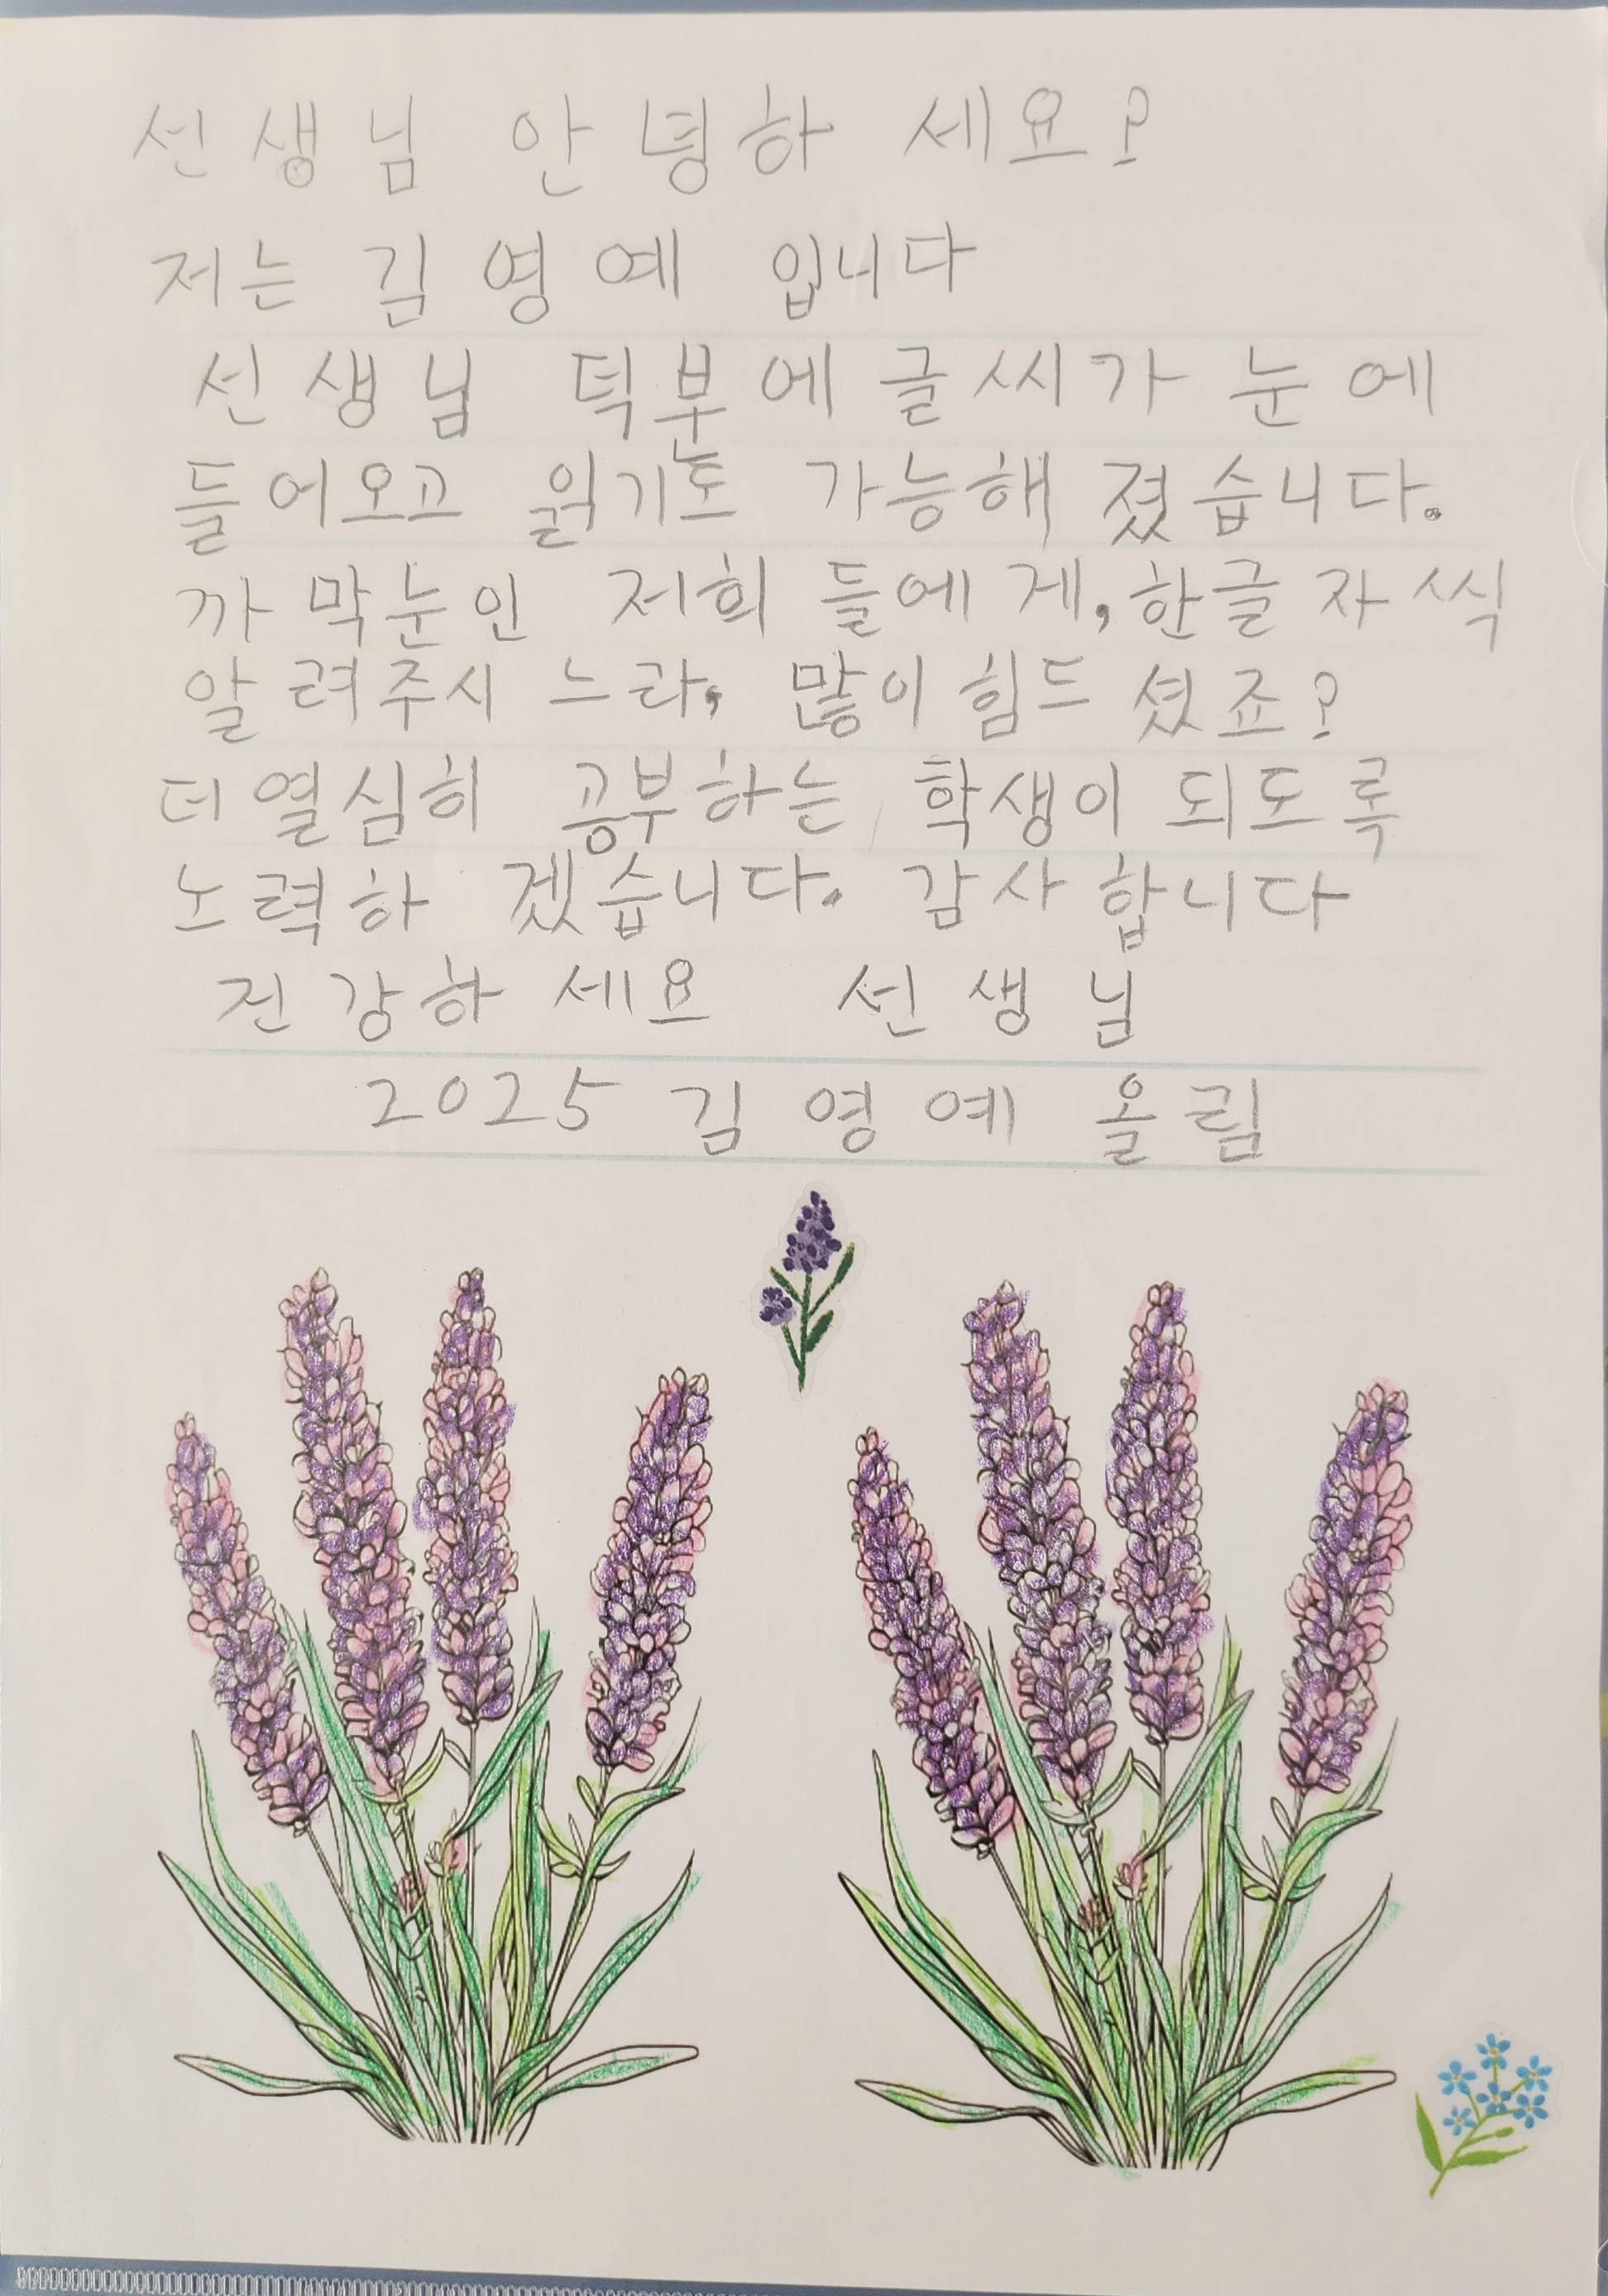 선생님 안녕하세요?
저는 김영예 입니다
선생님 덕분에 글씨가 눈에
들어오고 읽기도 가능해 졌습니다.
까막눈인 저희 들에게, 한글자씩
알려주시느라, 많이 힘드셨죠?
더열심히 공부하는 학생이 되도록
노력하겠습니다. 감사합니다
건강하세요 선생님
2025 김영예 올림